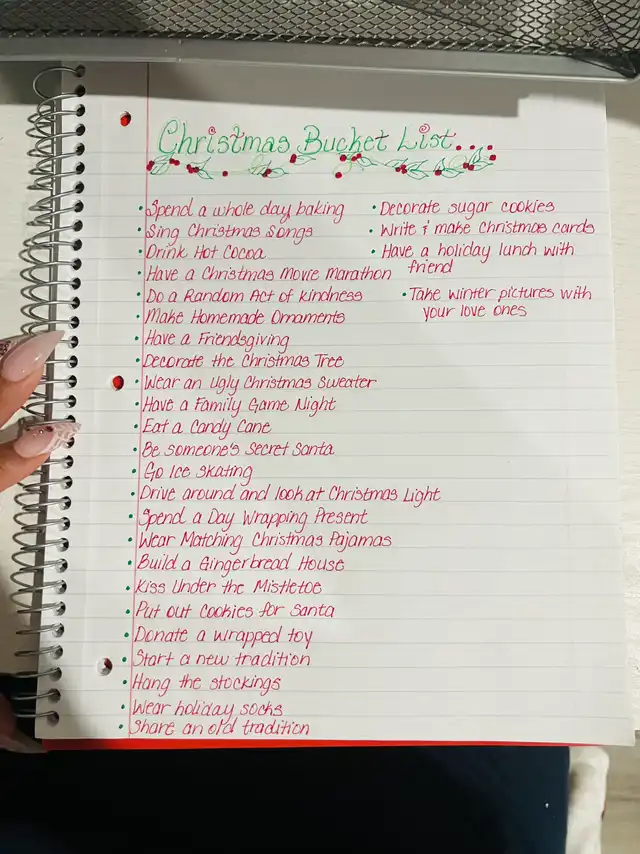 Christmas Bucket List...
• Spend a whole day baking
• Sing Christmas Songs
• Drink Hot Cocoa
• Have a Christmas Movie Marathon
• Do a Random Act of Kindness
• Make Homemade Ornaments
• Have a Friendsgiving
• Decorate the Christmas Tree
• Wear an Ugly Christmas Sweater
• Have a Family Game Night
• Eat a Candy Cane
• Be someone's Secret Santa
• Go Ice Skating
• Drive around and look at Christmas Light
• Spend a Day Wrapping Present
• Wear Matching Christmas Pajamas
• Build a Gingerbread House
• Kiss Under the Mistletoe
• Put out Cookies for Santa
• Donate a wrapped toy
• Start a new tradition
• Hang the stockings
• Wear holiday socks
• Share an old tradition
• Decorate sugar cookies
• Write & make Christmas cards
• Have a holiday lunch with
friend
• Take winter pictures with
your love ones